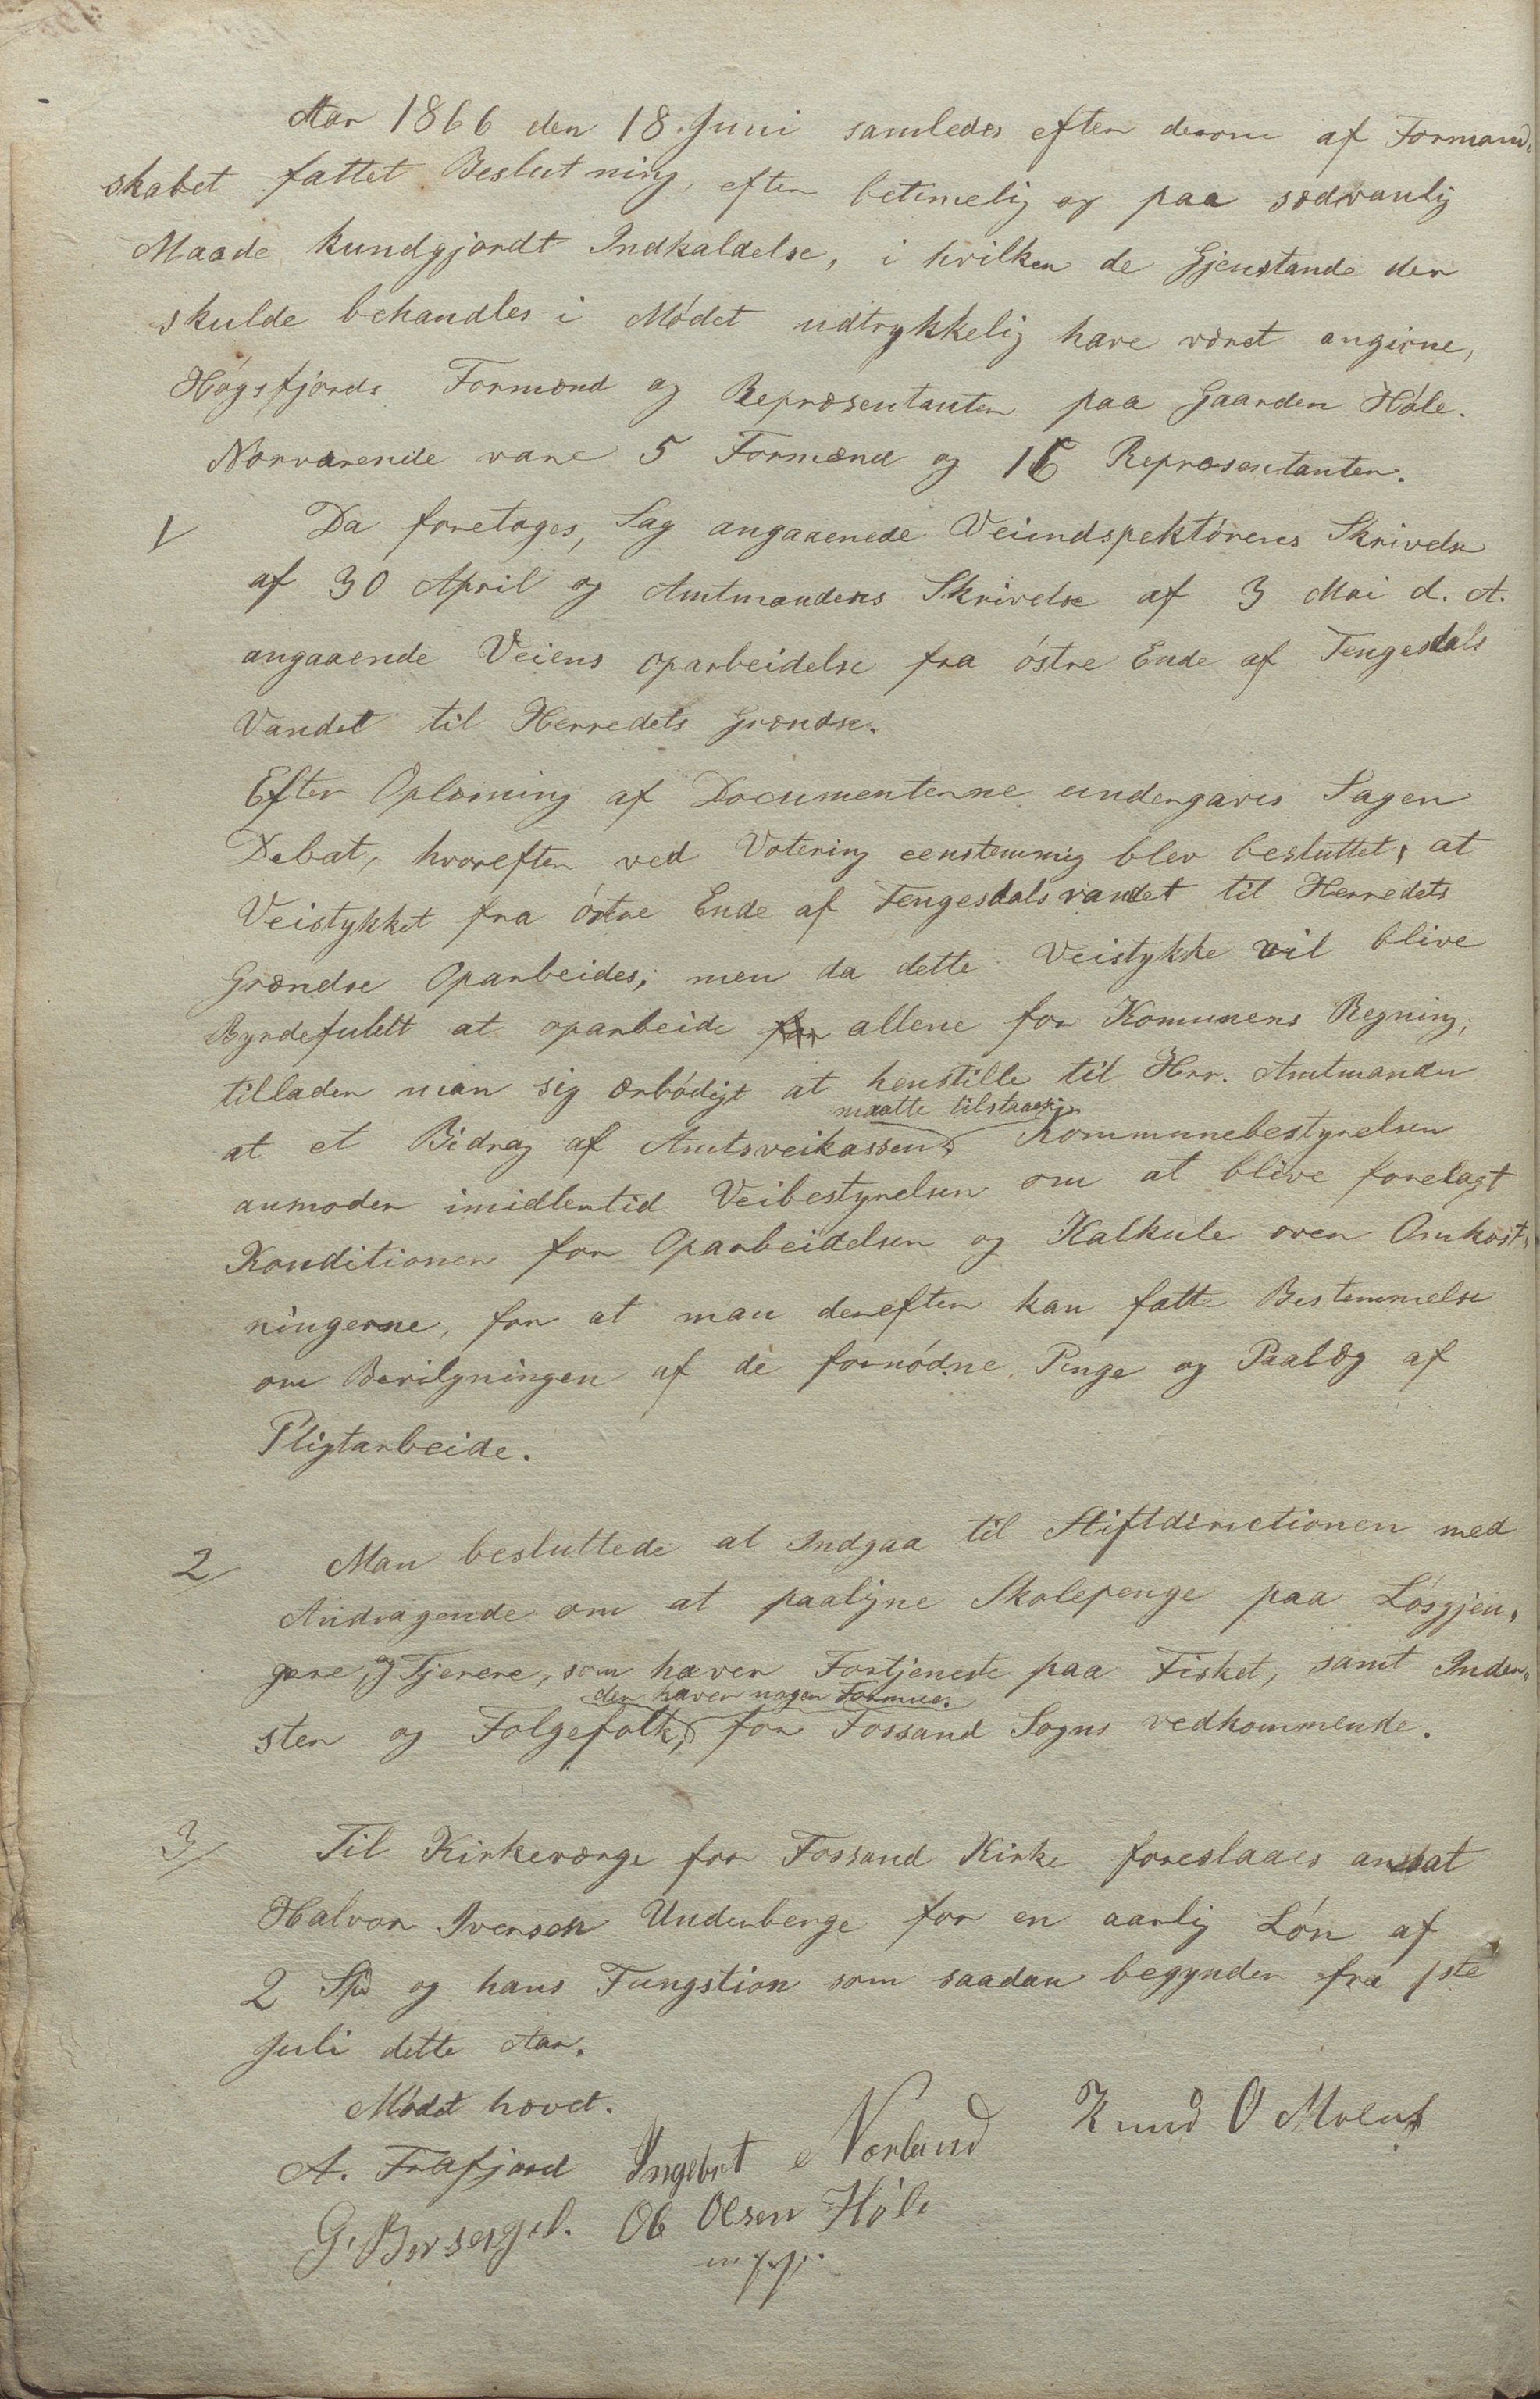 Aar 1866 den 18. Juni samledes efter derom af Formand,
skabet fattet Beslutning, efter betimelig og paa sædvanlig
Maade kundgjordt Indkaldelse, i hvilken de Gjenstande der
skulde behandles i Mødet udtrykkelig have været angivne,
Høgsfjords Formænd og Repræsentanter paa Gaarden Høle.
Nærværende vare 5 Formænd og 16 Repræsentanter.
1/ Da foretoges, Sag angaaenede Veiindspektørens Skrivelse
af 30 April og Amtmandens Skrivelse af 3 Mai d. A.
angaaende Veiens oparbeidelse fra østre Ende af Tengesdals
Vandet til Herredets Grændse.
Efter Oplæsning af Documenterne undergaves Sagen
Debat, hvorefter ved Votering eenstemmig blev besluttet, at
Veistykket fra østre Ende af Tengesdalsvandet til Herredets
Grændse Oparbeides; men da dette Veistykke vil blive
Byrdefuldt at oparbeide for allene for Komunens Regning,
tillader man sig ærbødigt at henstille til Hrr. Amtmanden
maatte tilstaaes;
at et Bidrag af Amtsveikassen, Kommunebestyrelsen
anmoder imidlertid Veibestyrelsen om at blive forelagt
Konditioner for Oparbeidelsen og Kalkule over Omkost,
ningerne, for at man derefter kan fatte Bestemmelse
om Bevilgningen af de fornødne Penge og Paalæg af
Pligtarbeide.
2/ Man besluttede at Indgaa til Stiftdirectionen med
Andragende om at paaligne Skolepenge paa Løsgjen,
gere, og Tjenere, som haver Fortjeneste paa Fisket, samt Inder,
der haver nogen Formue.
ster og Folgefolk, for Fossand Sogns vedkommende.
3/ Til Kirkeværge for Fossand Kirke foreslaaes ansat
Halvor Iversen Underberge for en aarlig Løn af
2 Spd og hans Fungstion som saadan begynder fra 1ste
Juli dette Aar.
Mødet hævet.
A. Frafjord Ingebrt Nørland Knud O
G. Ole Olsen Høle
m. f. p.